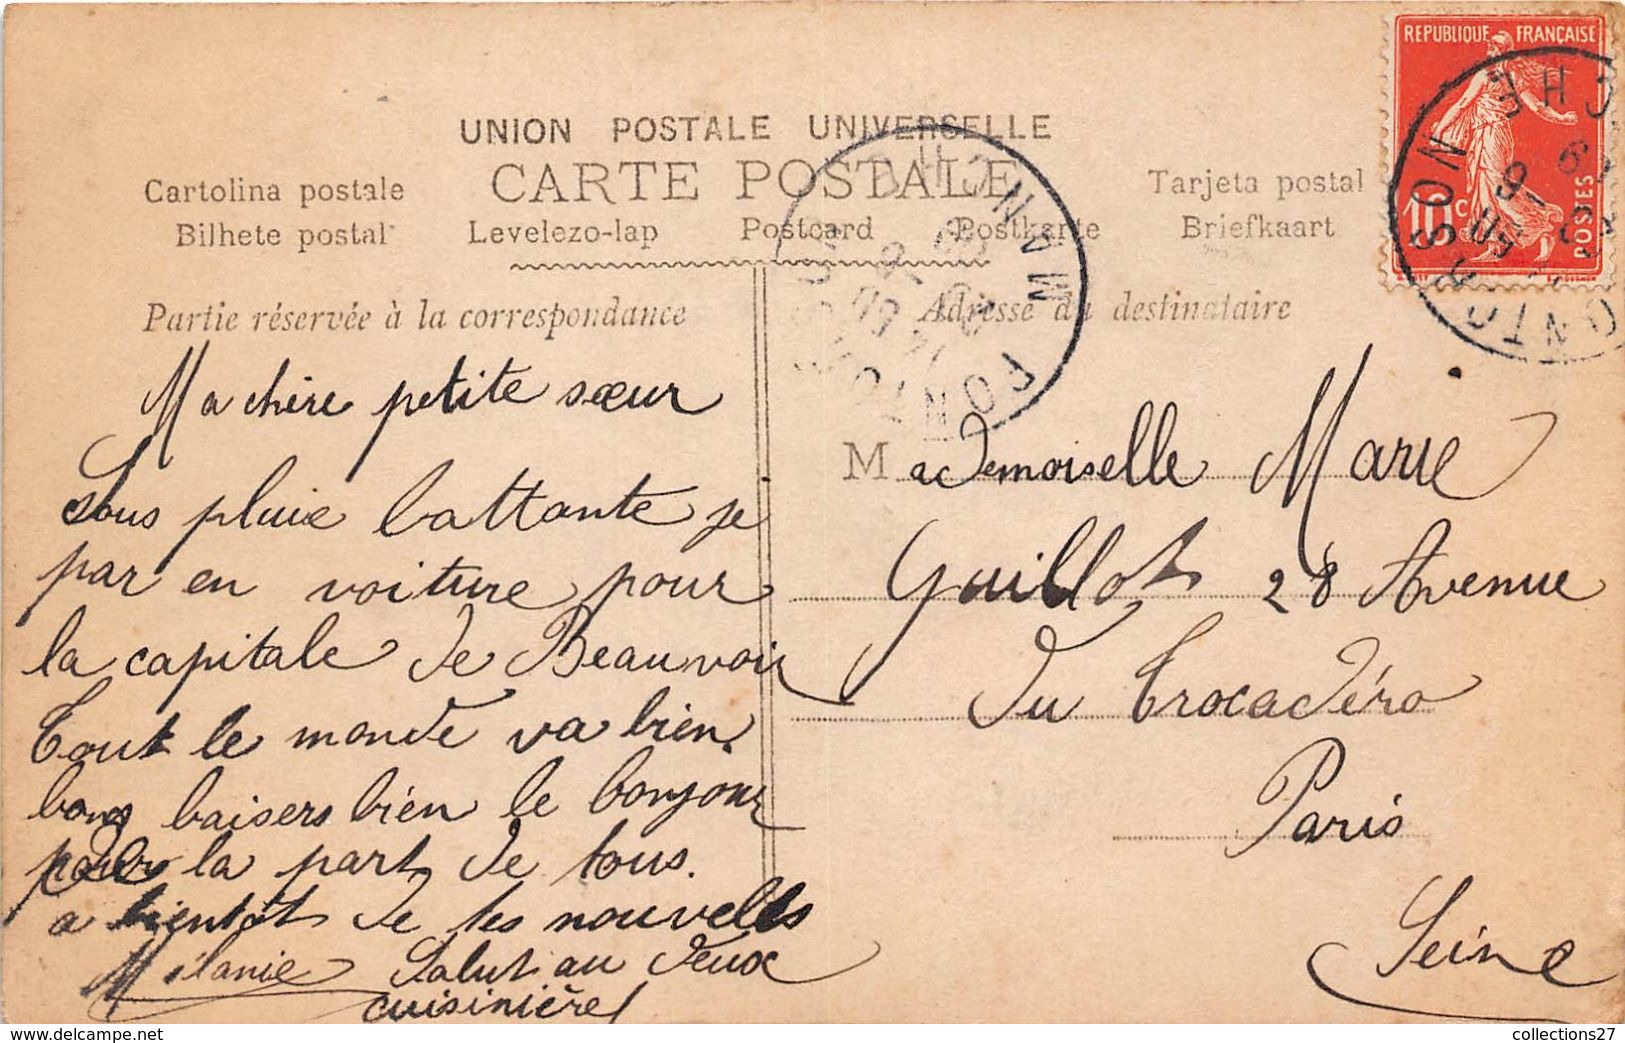 REPUBLIQUE FRANÇAISE
10c
POSTES
UNION POSTALE UNIVERSELLE
CARTE POSTALE
Cartolina postale
Tarjeta postal
Bilhete postal
Levelezo-lap
Postcard
Postkarte
Briefkaart
Partie réservée à la correspondance
Adresse du destinataire
PONTORSON
MANCHE
Ma chère petite sœur
Sous pluie battante je
par en voiture pour
la capitale de Beauvoir
Tout le monde va bien.
bons baisers bien le bonjour
la part de tous.
a bientôt de tes nouvelles
Mélanie Salut au deux
cuisinières
Mademoiselle Marie
Guillot 28 Avenue
du Trocadéro
Paris
Seine
collections27